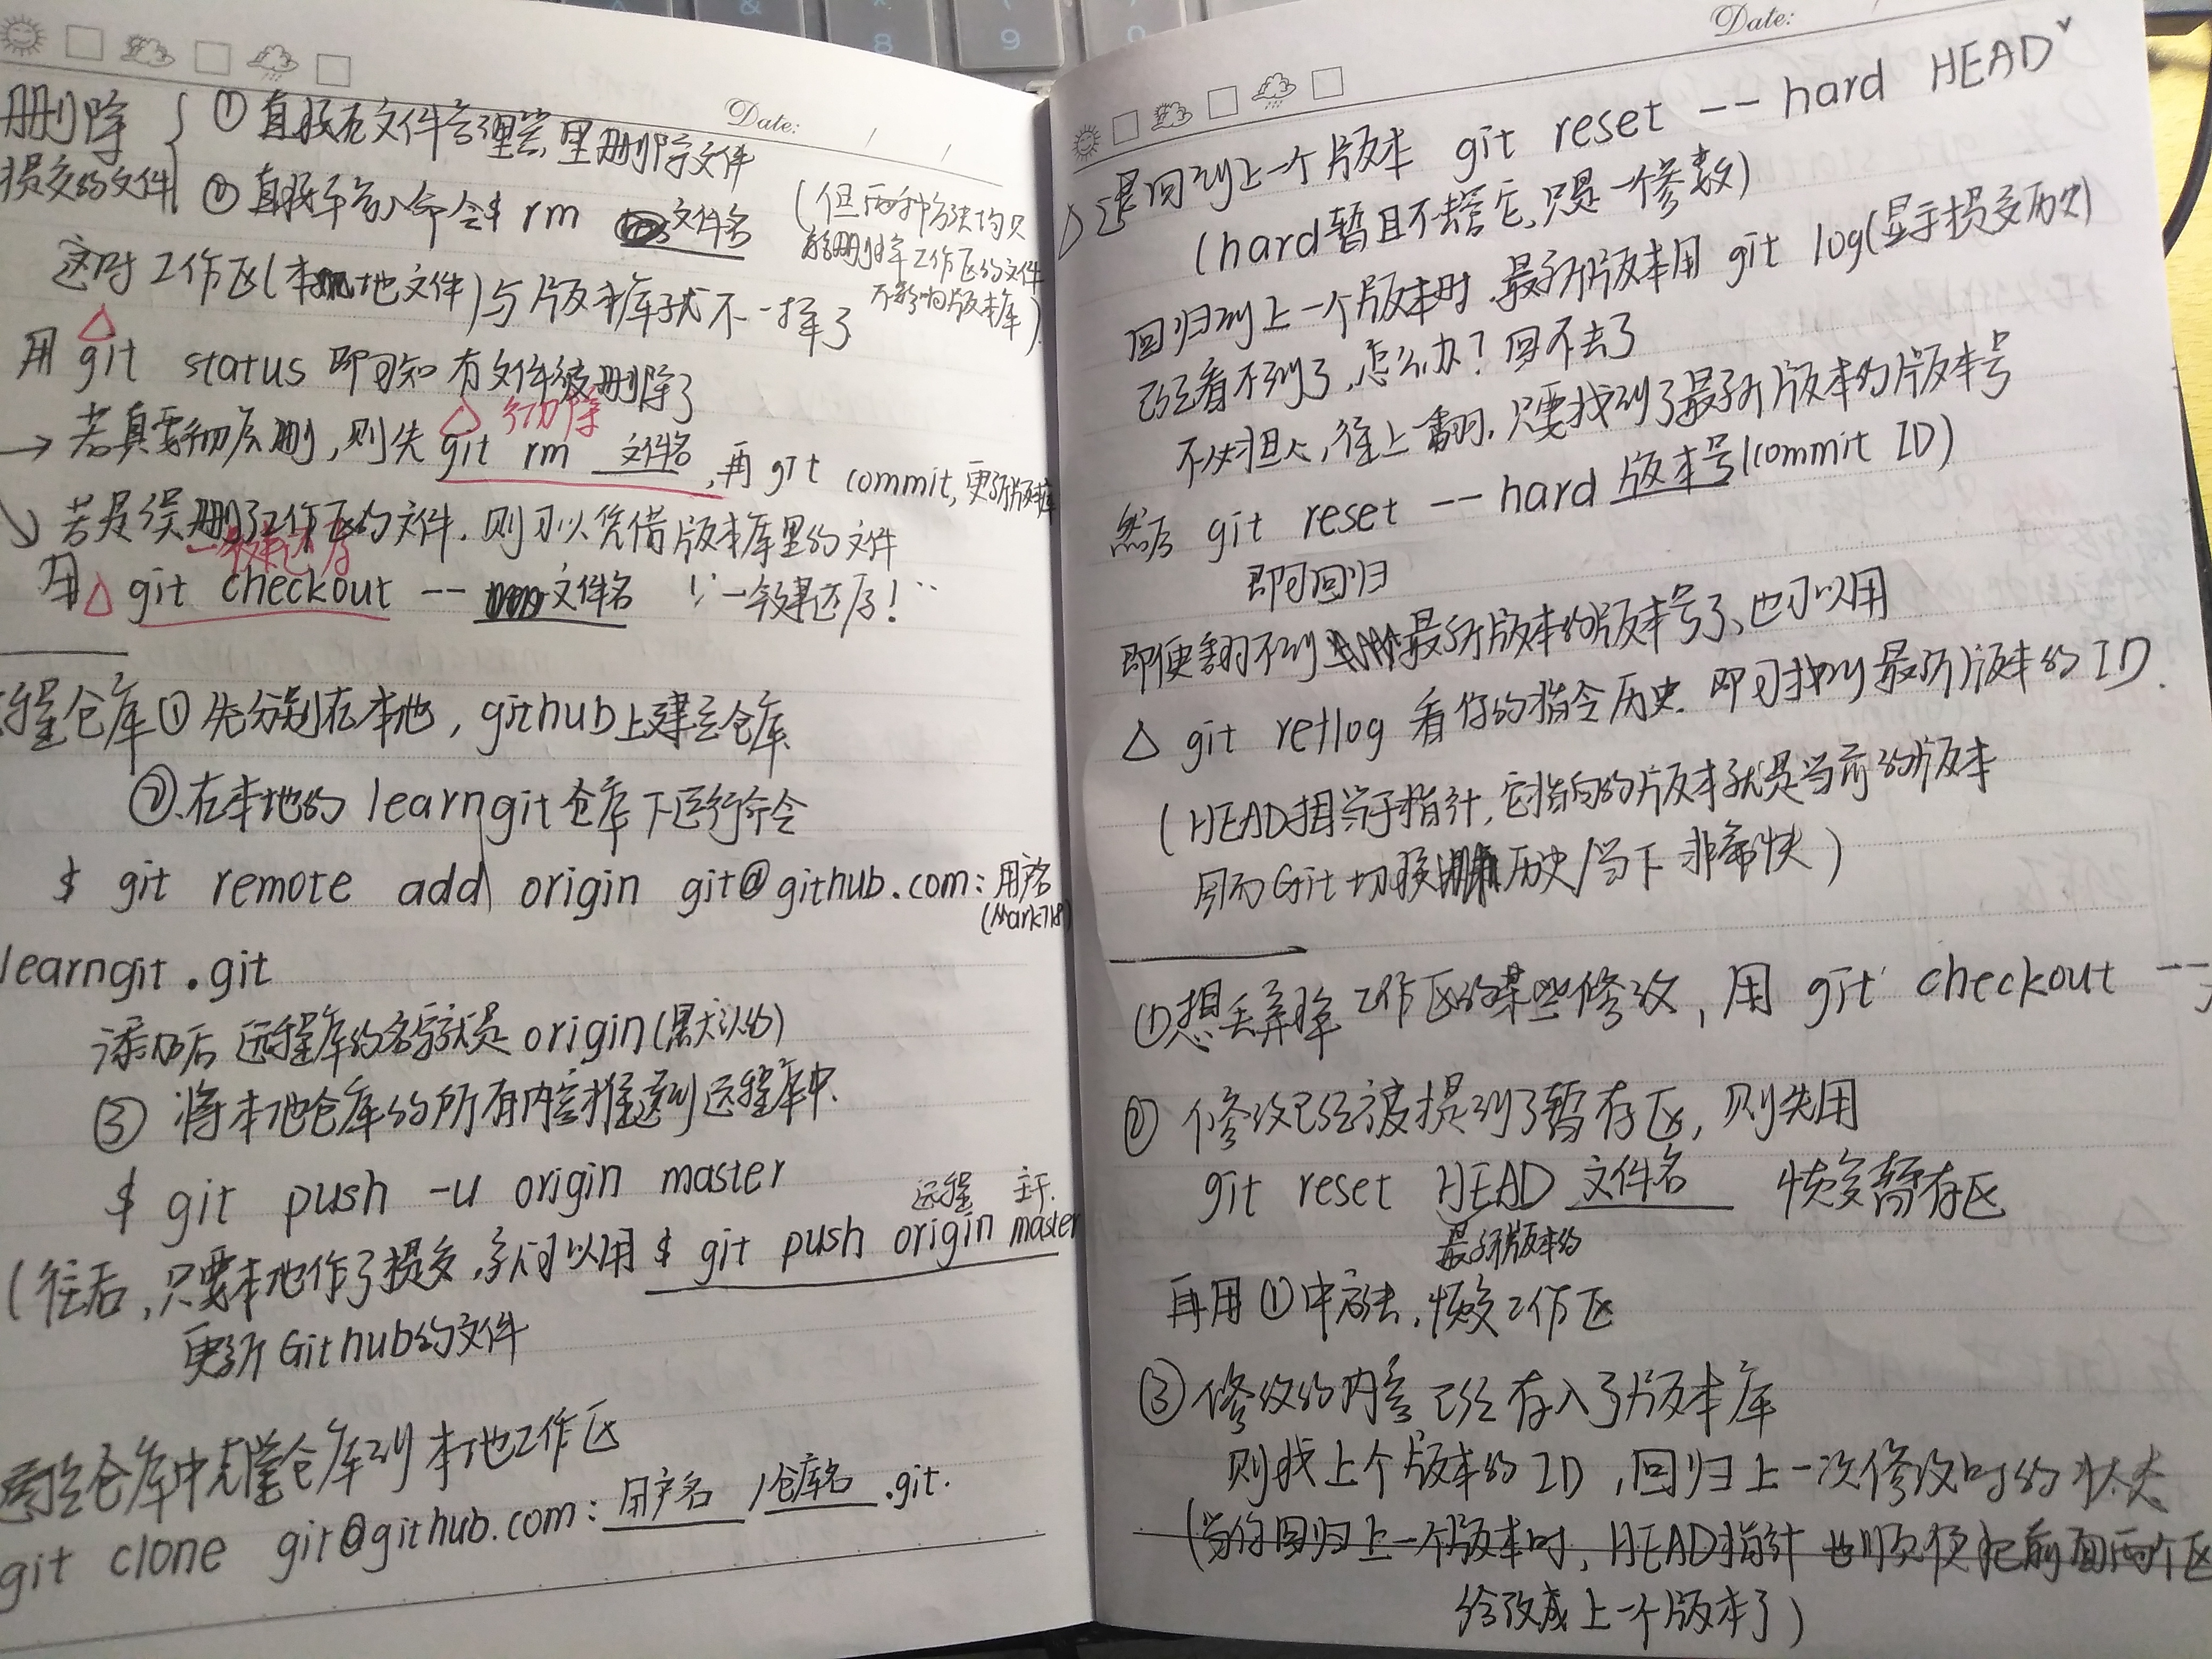 Date:
删除 ① 直接在文件管理器里删除文件
提交的文件 ② 直接输入命令$ rm 文件名
(但两种方法均只
能删掉工作区的文件
不影响版本库)
这时工作区(本地文件)与版本库就不一样了
用 △git status 即可知有文件被删除了
彻底删除
→ 若真要彻底删,则先 △git rm 文件名,再 git commit,更新版本库
↘ 若是误删了工作区的文件.则可以凭借版本库里的文件
一键还原
用△ git checkout -- 文件名 "一键还原!"
远程仓库 ① 先分别在本地,github上建立仓库
②.在本地的 learngit 仓库下运行命令
$ git remote add origin git@github.com:用户名
(Mark718)
learngit.git
添加后 远程库的名字就是 origin(默认的)
③ 将本地仓库的所有内容推送到远程库中.
$ git push -u origin master
远程 主干.
(往后,只要本地作了提交,就可以用 $ git push origin master
更新Github的文件
仓库中克隆仓库到本地工作区
git clone git@github.com:用户名/仓库名.git.
Date:
△退回到上一个版本 git reset -- hard HEAD^
(hard暂且不去管它,只是一个参数)
回归到上一个版本时.最新版本用 git log(显示提交历史)
已经看不到了,怎么办?回不去了
不必担心,往上翻.只要找到了最新版本的版本号
然后 git reset -- hard 版本号(commit ID)
即可回归
即使翻不到最新版本的版本号了、也可以用
△ git reflog 看你的指令历史.即可找到最新版本的ID.
(HEAD相当于指针,它指向的版本就是当前的版本
因而Git切换历史/当下非常快)
①想丢弃掉工作区的某些修改,用 git checkout --
② 修改已经被提到了暂存区,则先用
git reset HEAD 文件名 恢复暂存区
最新版本的
再用①中方法.恢复工作区
③ 修改的内容已经存入了版本库
则找上个版本的ID,回归上一次修改时的状态
(当你回归上一个版本时,HEAD指针也顺便把前面两个区
给改成上一个版本了)